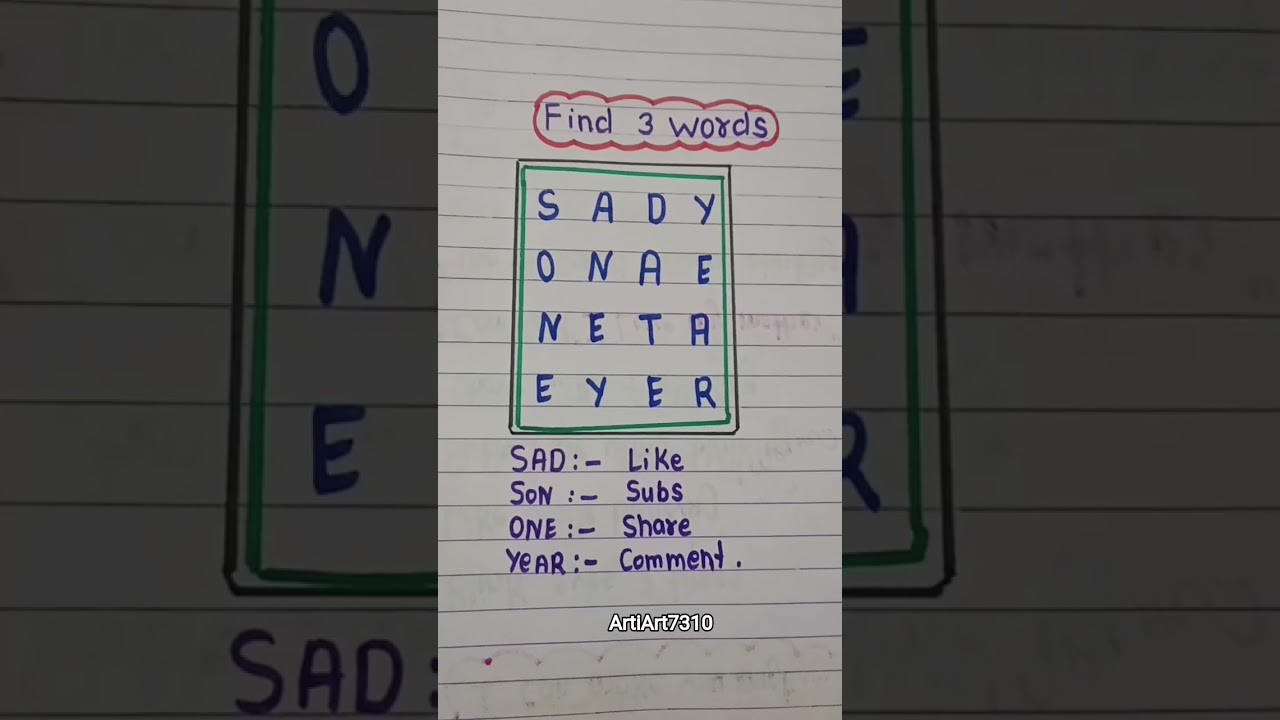 Find 3 words
S A D Y
O N A E
N E T A
E Y E R
SAD:- Like
SON :- Subs
ONE:- Share
YeAR:- Comment.
ArtiArt7310